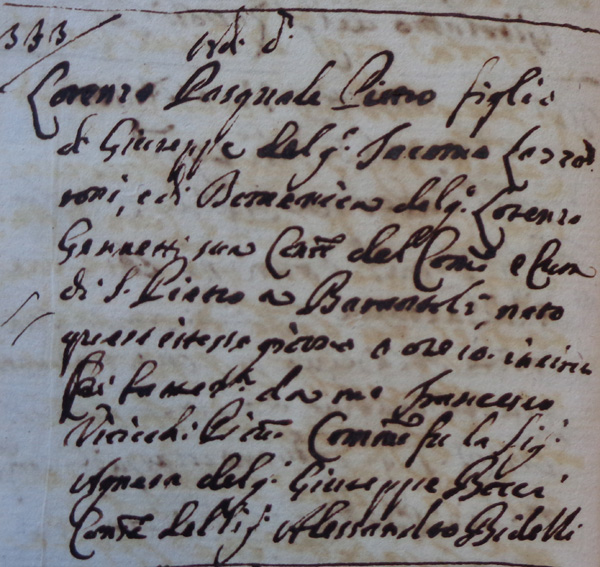 333
d.° d.°
Lorenzo Pasquale Pietro figlio
di Giuseppe del q. Iacomo Lazza
roni, e di Domenica del q. Lorenzo
Gennetti sua Cons.te del Com.e e Cura
di S. Pietro a Barantoli, nato
questo istesso giorno a ore 10. in circa
fu battez.o da me Francesco
Vitichi Com.e fu la Sig.
Agnesa del q. Giuseppe Bocci
Cons.te del Sig. Alessandro Bidelli